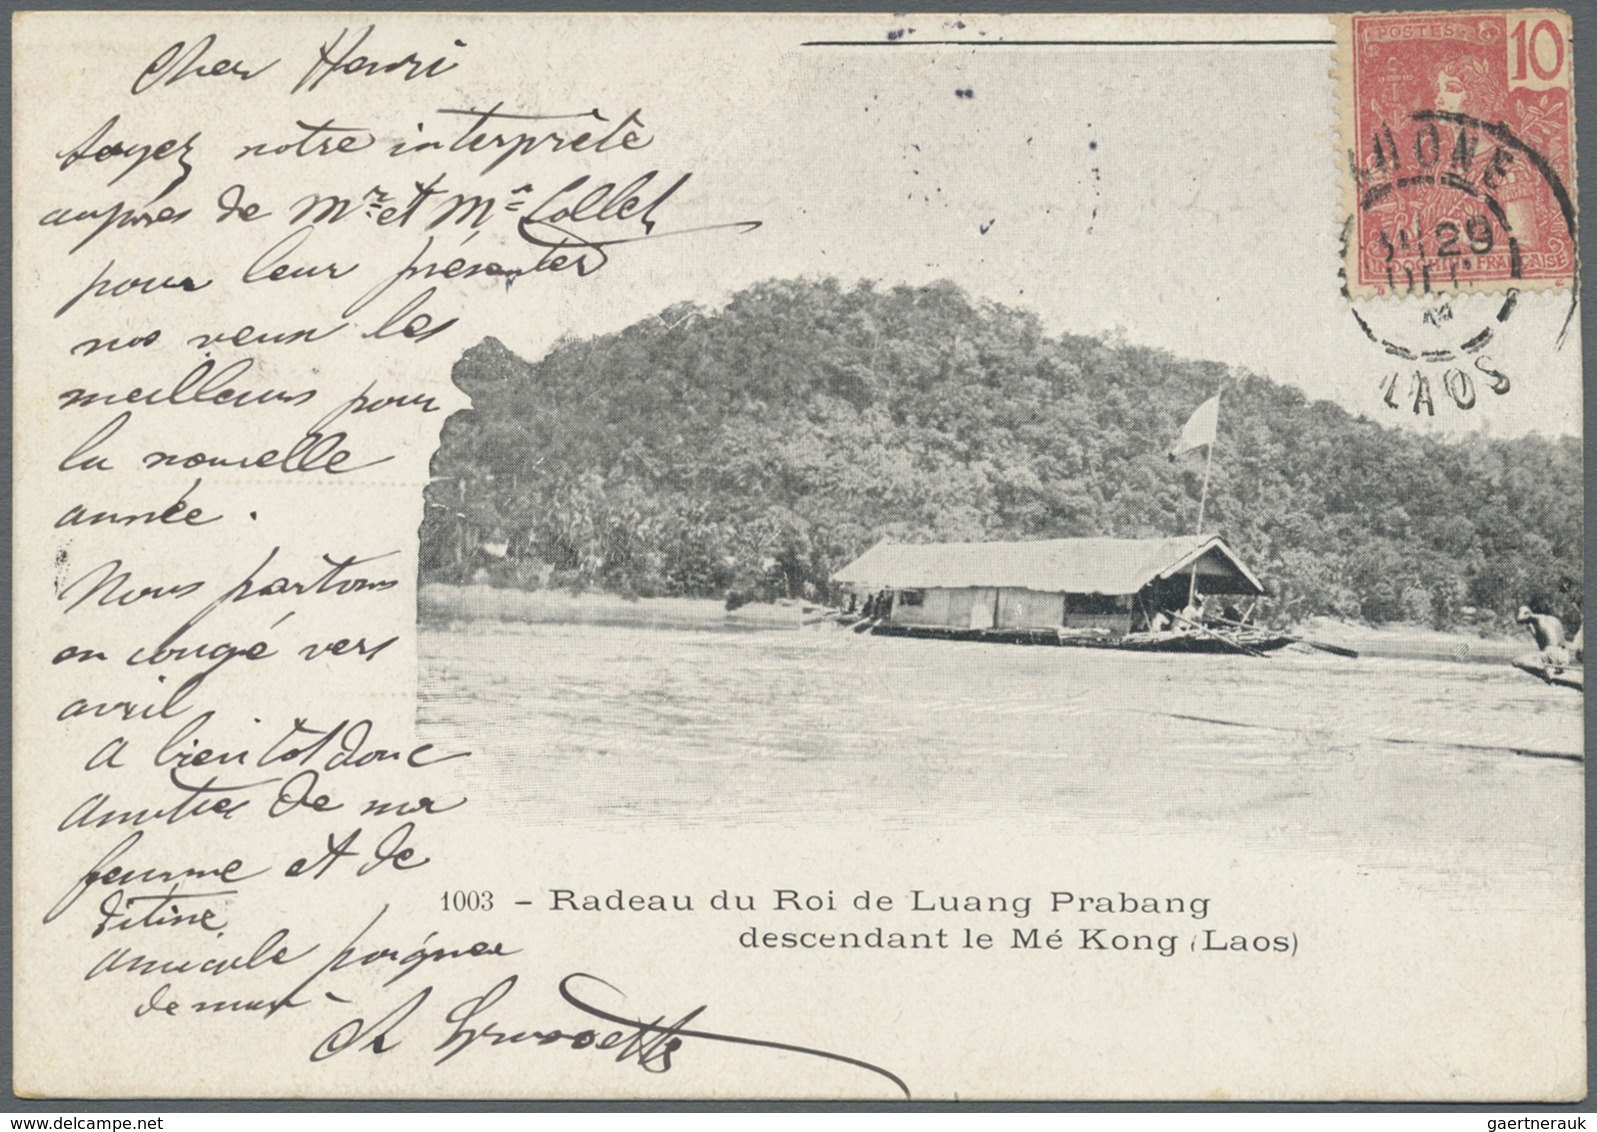 Cher Henri
soyez notre interprète
auprès de Mr et Me Collet
pour leur présenter
nos vœux les
meilleurs pour
la nouvelle
année.
Nous partons
en congé vers
avril
a bientot donc
amitiés de ma
femme et de
Titine.
amicale poignée
de main -
POSTES
10
INDOCHINE FRANÇAISE
KHONE
29
LAOS
1003 – Radeau du Roi de Luang Prabang
descendant le Mé Kong (Laos)
gaertnerauk